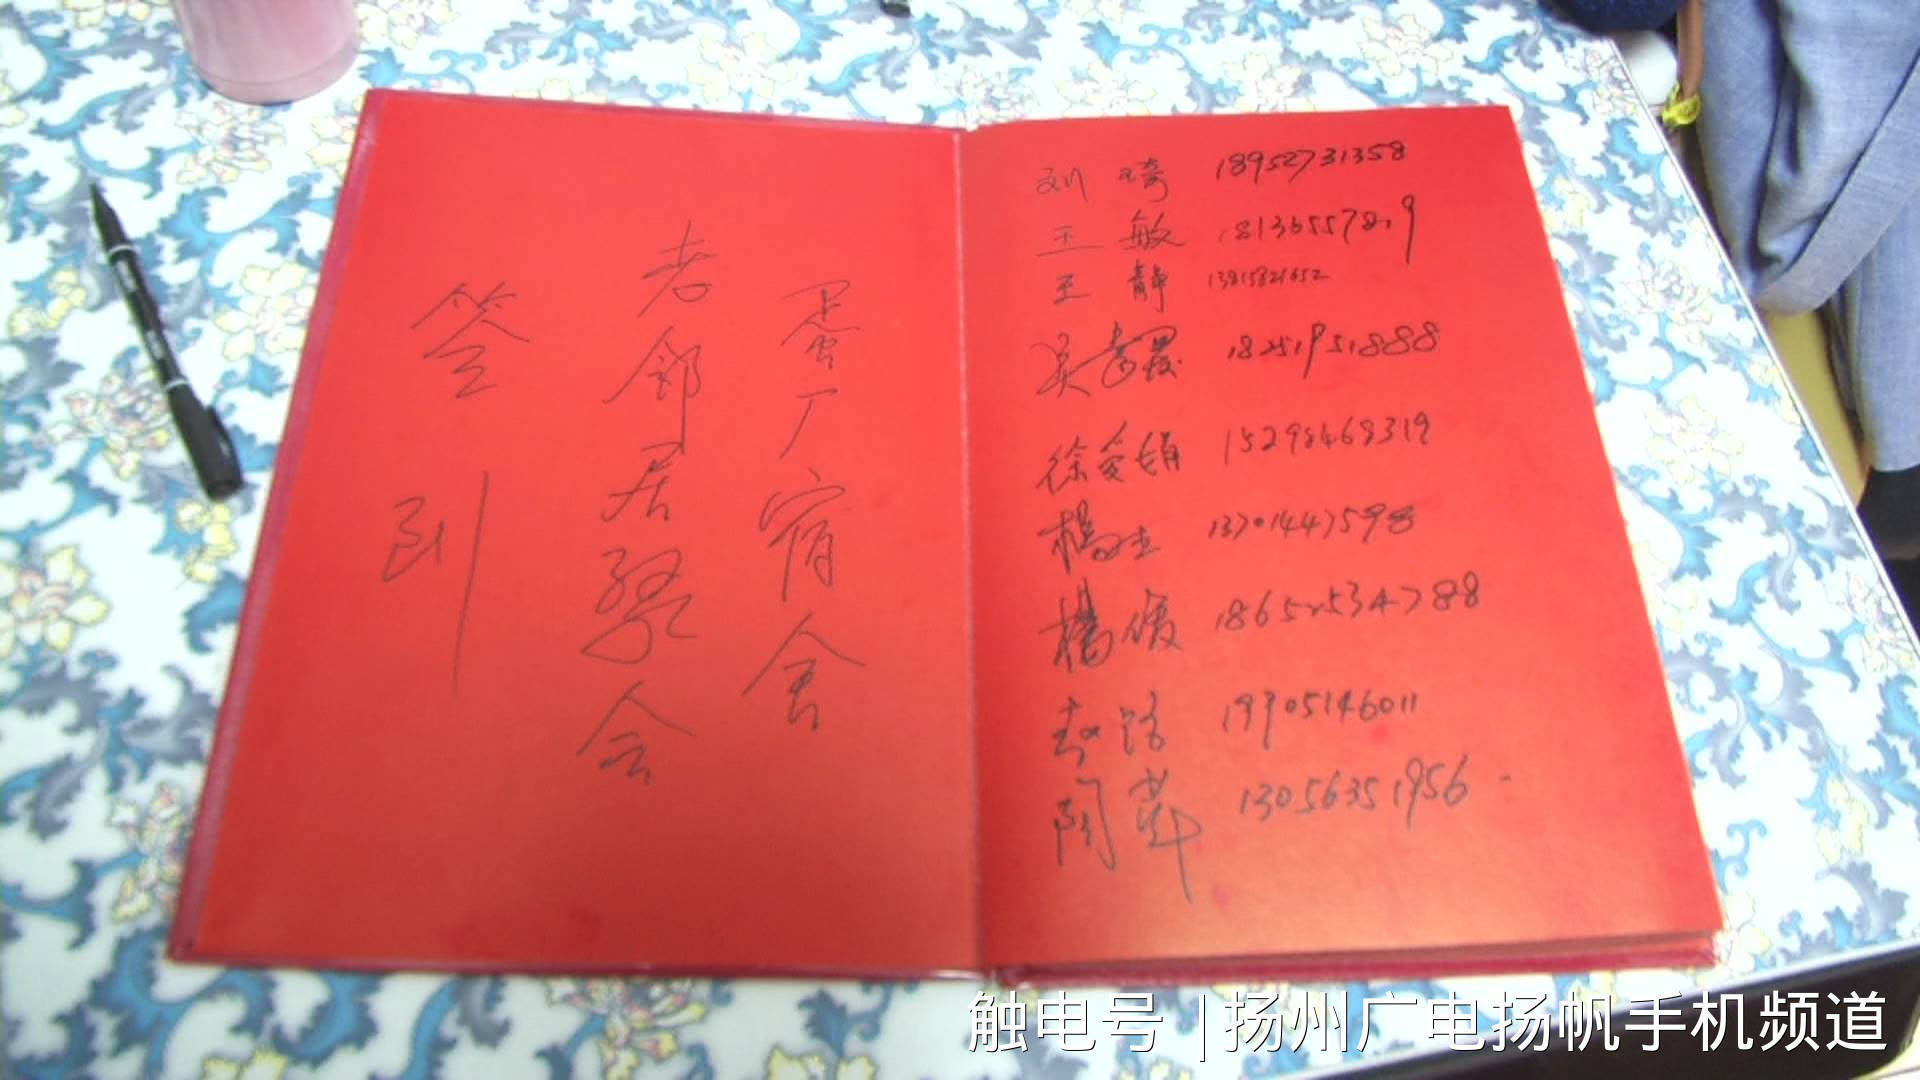 蛋厂宿舍
老邻居聚会
签到
刘琦 18952731358
王敏
王静 13815821652
吴 18251951888
徐爱娟 15298468319
杨 13701447598
杨俊 18652534788
赵 19905146011
陶莉 13056351956
触电号 | 扬州广电扬帆手机频道